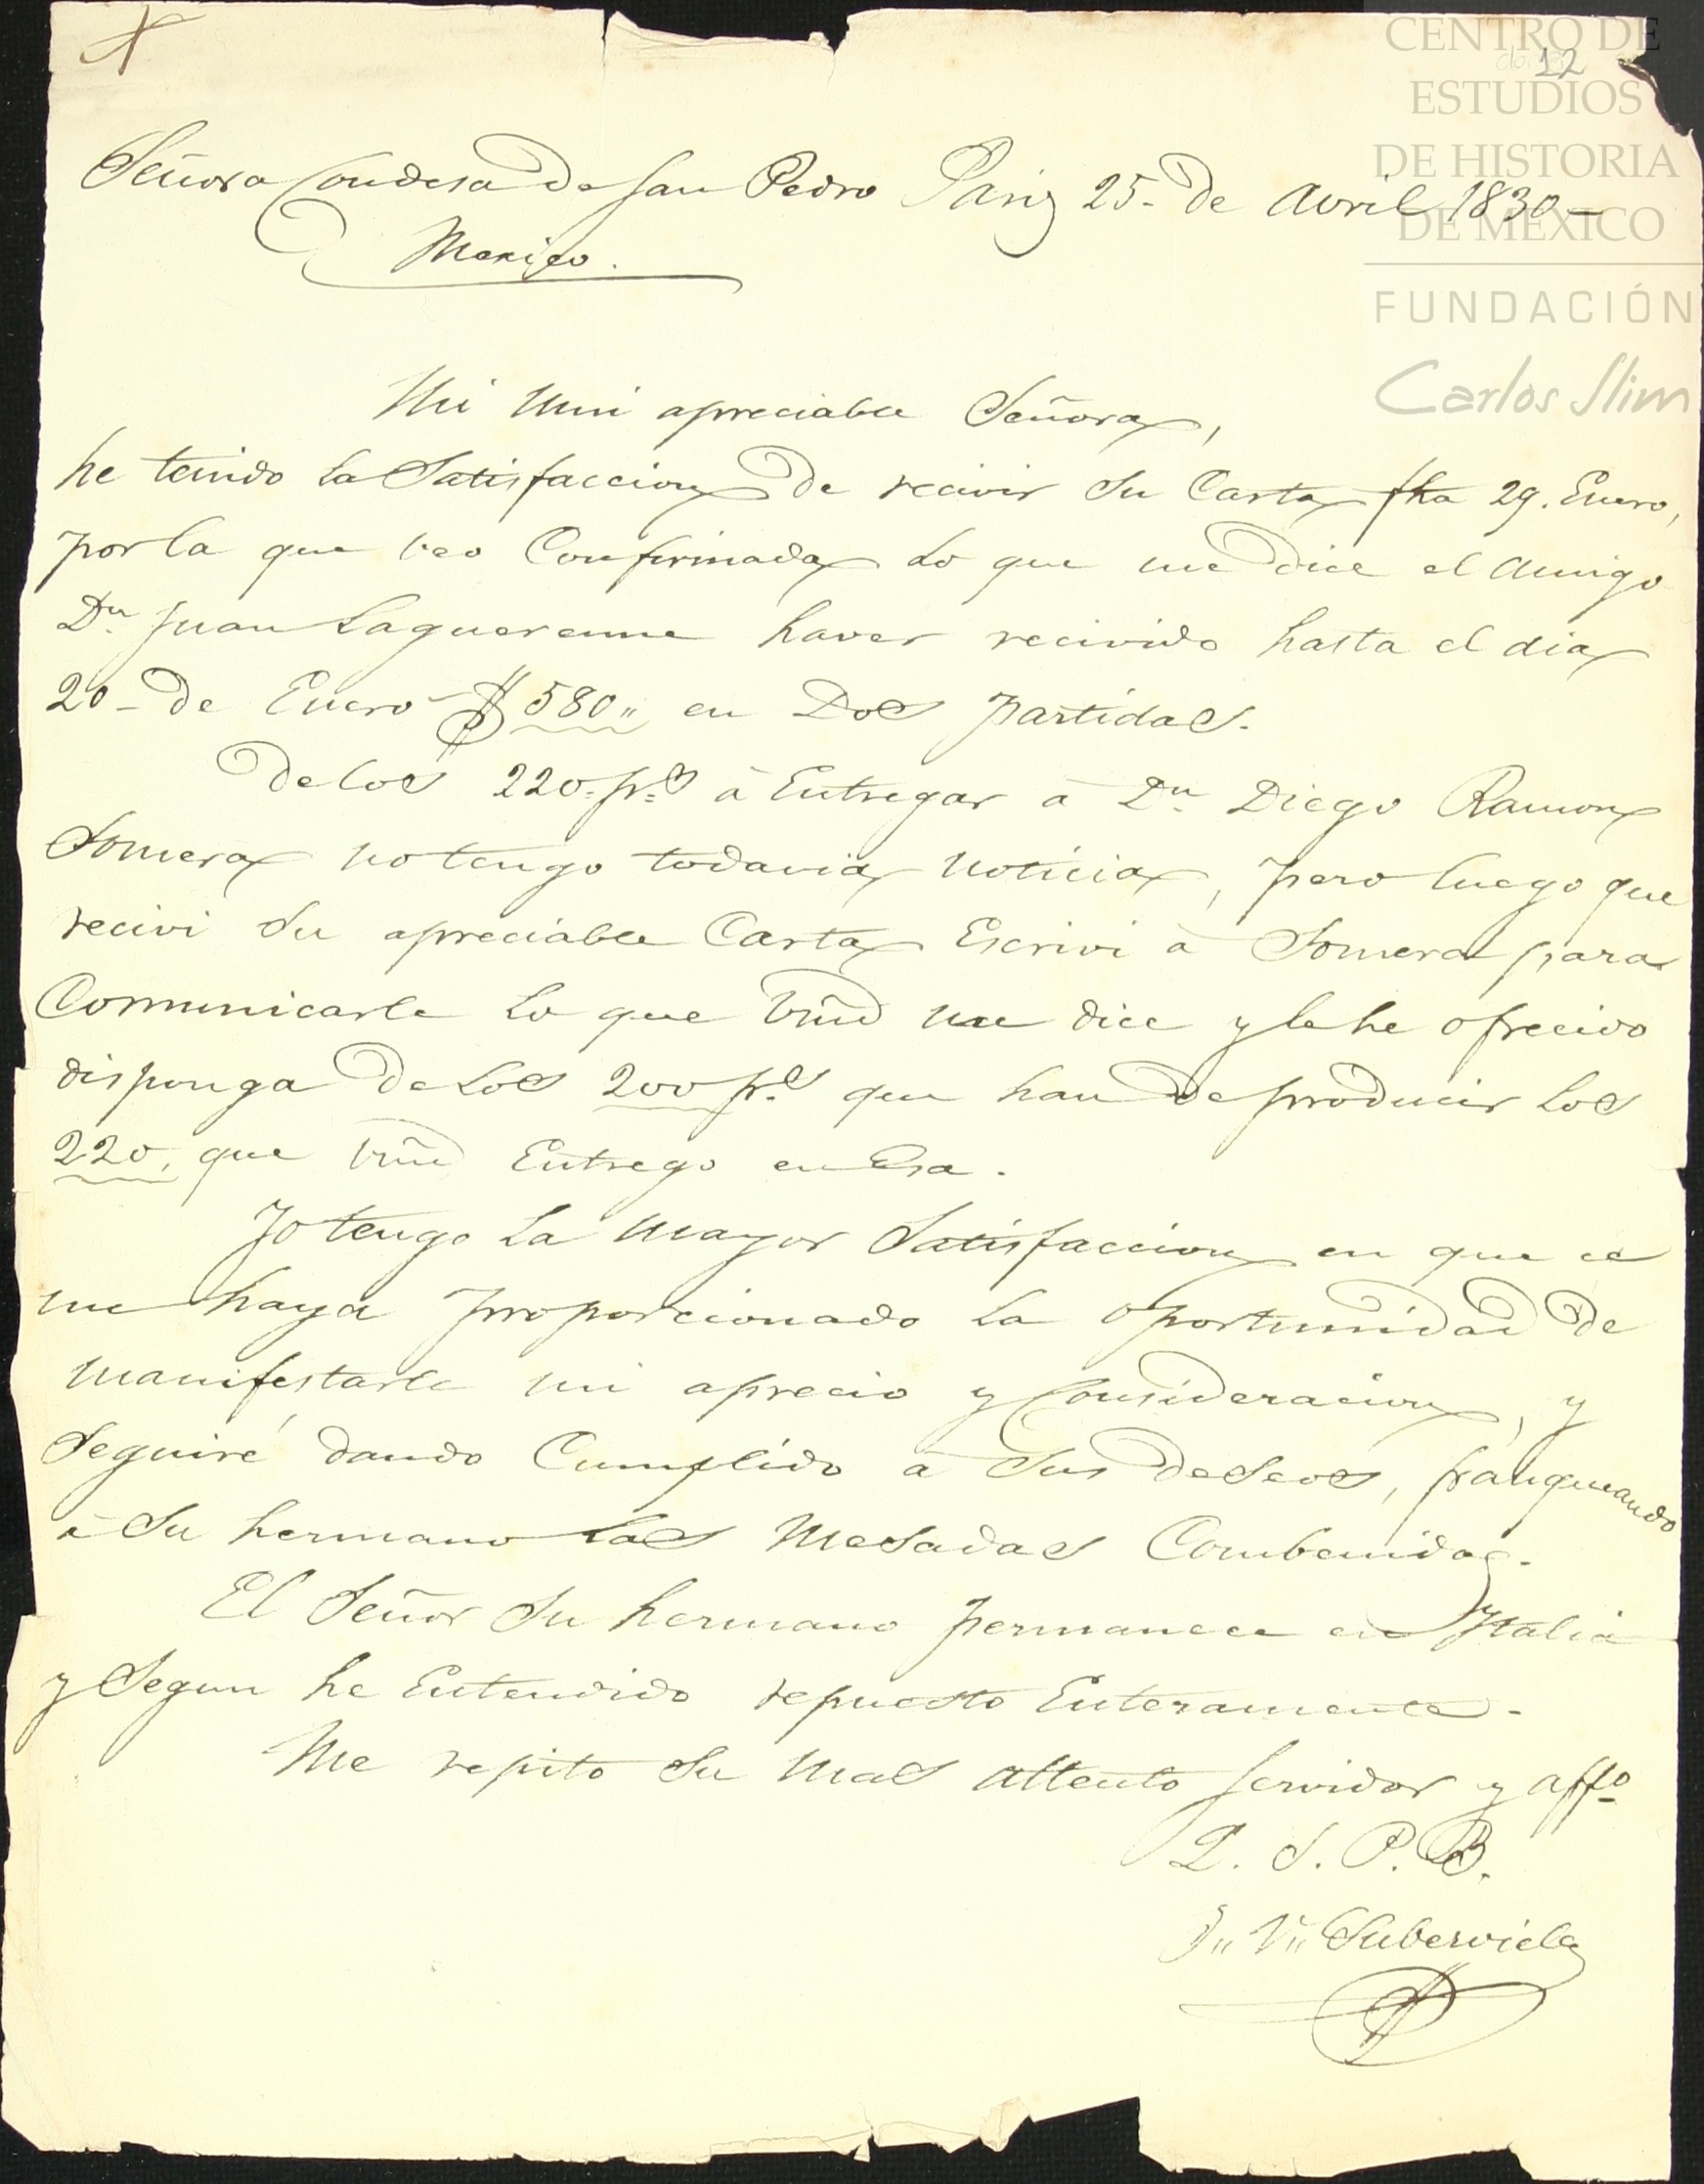 CENTRO DE
12
ESTUDIOS
DE HISTORIA
DE MÉXICO
FUNDACIÓN
Carlos Slim
Señora Condesa de San Pedro Paris 25- de Avril 1830-
Mexico.
Mi mui apreciable Señora,
he tenido la Satisfaccion de recivir Su Carta fha 29. Enero,
por la que veo Confirmada lo que me dice el amigo
Dn Juan Laguerenne haver recivido hasta el dia
20- de Enero $ 580,, en Dos partidas.
De los 220. ps á Entregar á Dn Diego Ramon
Somera no tengo todavia noticia, pero luego que
recivi Su apreciable Carta Escrivi á Somera para
Comunicarle lo que Vmd me dice y le he ofrecido
disponga de los 200 ps que han de producir los
220, que Vmd Entrego en Esa.
Yo tengo la mayor Satisfaccion en que se
me haya proporcionado la oportunidad de
manifestarle mi aprecio y Consideracion, y
Seguiré dando Cumplido á Sus deseos, franqueando
á Su hermano las Mesadas Combenidas.
El Señor Su hermano permanece en Ytalia
y Segun he Entendido repuesto Enteramente.
Me repito Su mas attento servidor y affo
Q. S. P. B.
Suberviele